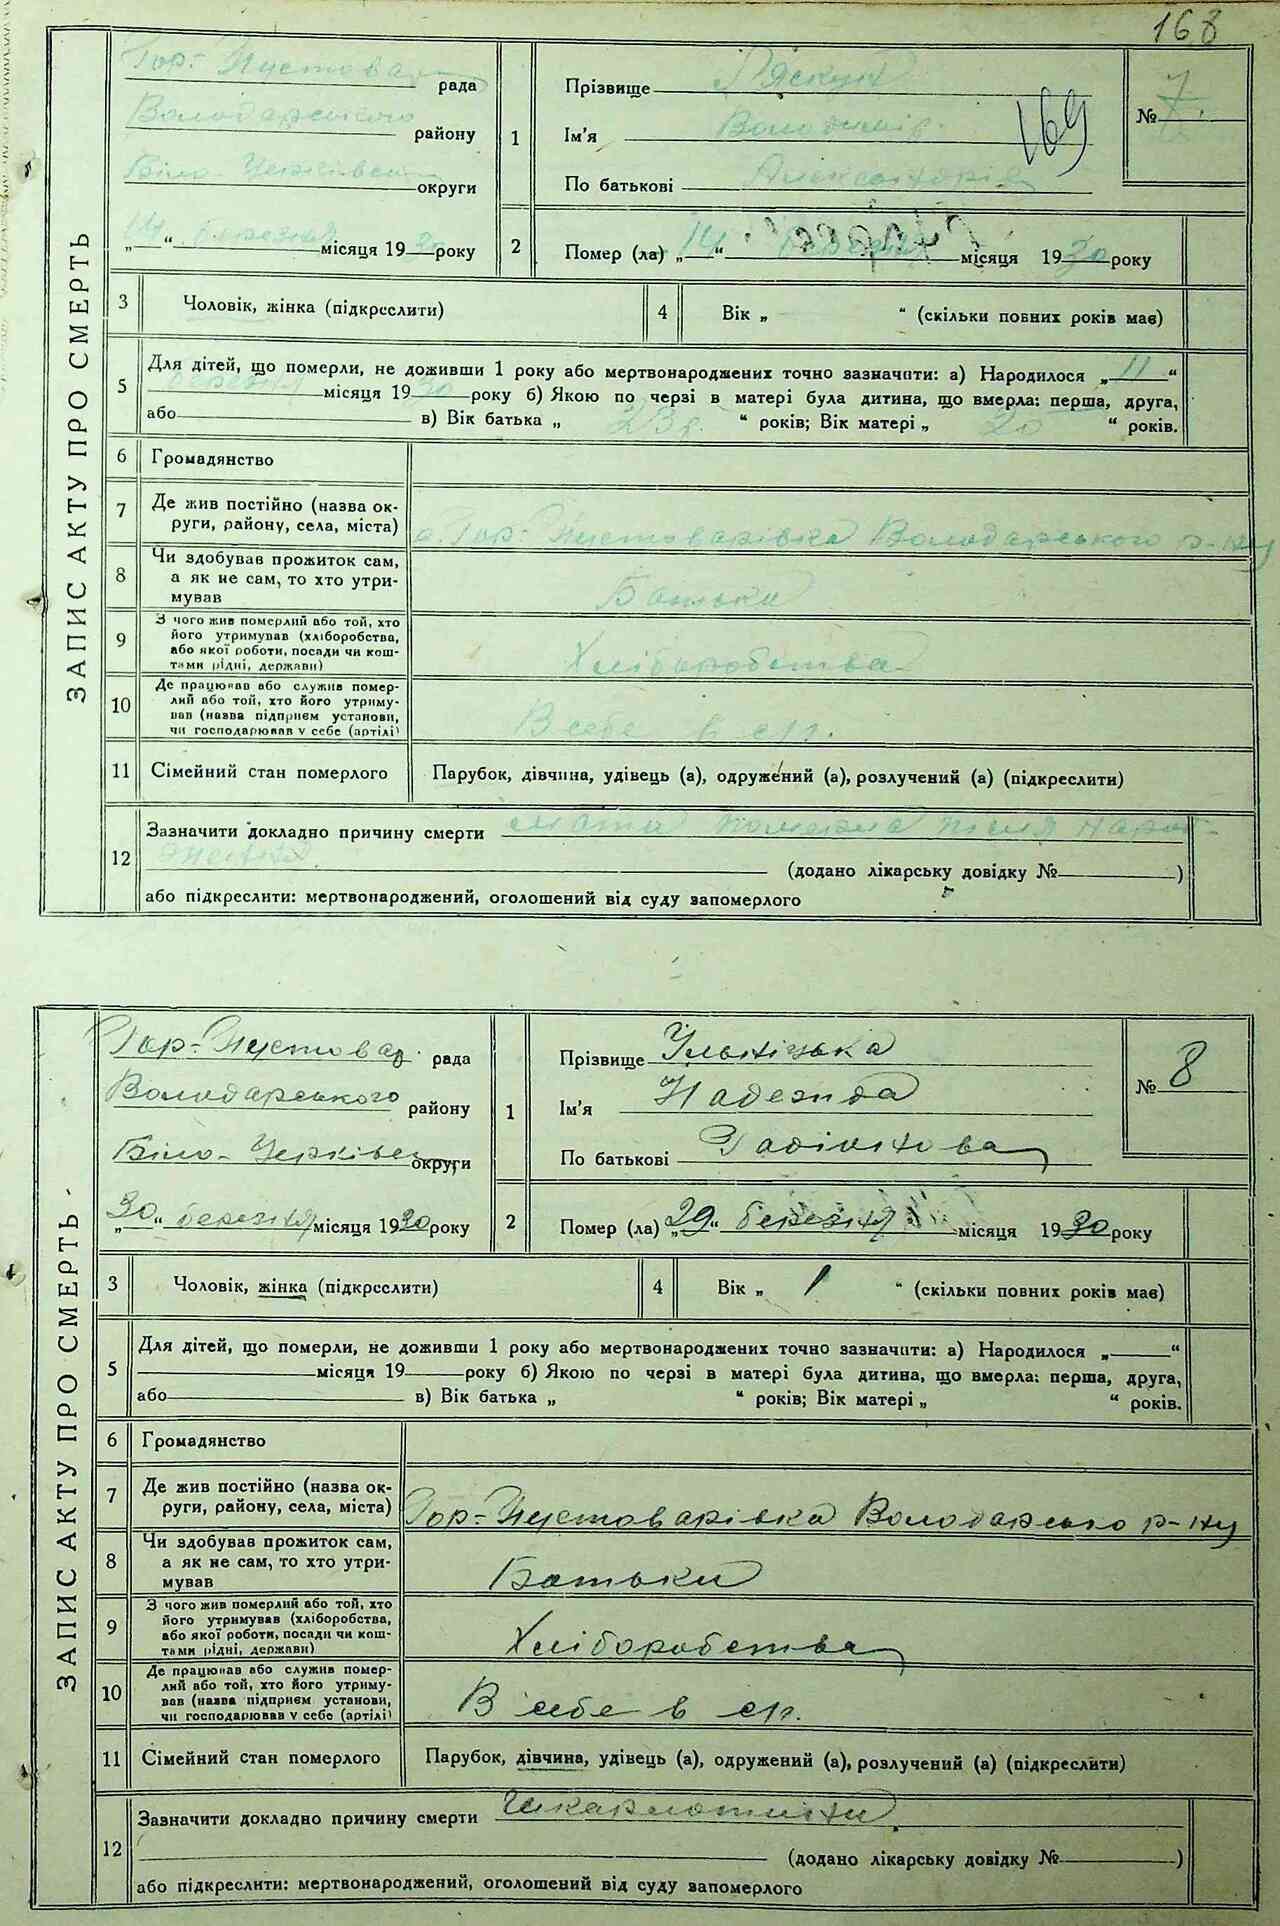 168
ЗАПИС АКТУ ПРО СМЕРТЬ
Гор-Пустовар рада
Володарського району
Біло-Церківськ округи
„14“ березня місяця 1930 року
1
Прізвище
Ім'я Володимір
По батькові Александрів
169
№ 7.
2
Помер (ла) „14“ березня місяця 1930 року
3 Чоловік, жінка (підкреслити)
4 Вік „ “ (скільки повних років має)
5 Для дітей, що померли, не доживши 1 року або мертвонароджених точно зазначити: а) Народилося „11“
березня місяця 1930 року б) Якою по черзі в матері була дитина, що вмерла: перша, друга,
або в) Вік батька „ 23 р. “ років; Вік матері „ 20 “ років.
6 Громадянство
7 Де жив постійно (назва ок-
руги, району, села, міста)
с. Гор-Пустоварівка Володарського р-ну
8 Чи здобував прожиток сам,
а як не сам, то хто утри-
мував
Батьки
9 З чого жив померлий або той, хто
його утримував (хліборобства,
або якої роботи, посади чи кош-
тами рідні, держави)
Хліборобства
10 Де працював або служив помер-
лий або той, хто його утриму-
вав (назва підприєм установи,
чи господарював у себе (артілі)
В себе в с/г.
11 Сімейний стан померлого
Парубок, дівчина, удівець (а), одружений (а), розлучений (а) (підкреслити)
12 Зазначити докладно причину смерти мати померла після народ-
ження.
(додано лікарську довідку № )
або підкреслити: мертвонароджений, оголошений від суду запомерлого
ЗАПИС АКТУ ПРО СМЕРТЬ
Гор-Пустовар. рада
Володарського району
Біло-Церківськ округи
„30“ березня місяця 1930 року
1
Прізвище Ульніцька
Ім'я Надежда
По батькові
№ 8
2
Помер (ла) „29“ березня місяця 1930 року
3 Чоловік, жінка (підкреслити)
4 Вік „ 1 “ (скільки повних років має)
5 Для дітей, що померли, не доживши 1 року або мертвонароджених точно зазначити: а) Народилося „ “
місяця 19 року б) Якою по черзі в матері була дитина, що вмерла: перша, друга,
або в) Вік батька „ “ років; Вік матері „ “ років.
6 Громадянство
7 Де жив постійно (назва ок-
руги, району, села, міста)
Гор-Пустоварівка Володарсько р-ну
8 Чи здобував прожиток сам,
а як не сам, то хто утри-
мував
Батьки
9 З чого жив померлий або той, хто
його утримував (хліборобства,
або якої роботи, посади чи кош-
тами рідні, держави)
Хліборобства
10 Де працював або служив помер-
лий або той, хто його утриму-
вав (назва підприєм установи,
чи господарював у себе (артілі)
В себе в с/г.
11 Сімейний стан померлого
Парубок, дівчина, удівець (а), одружений (а), розлучений (а) (підкреслити)
12 Зазначити докладно причину смерти
(додано лікарську довідку № )
або підкреслити: мертвонароджений, оголошений від суду запомерлого